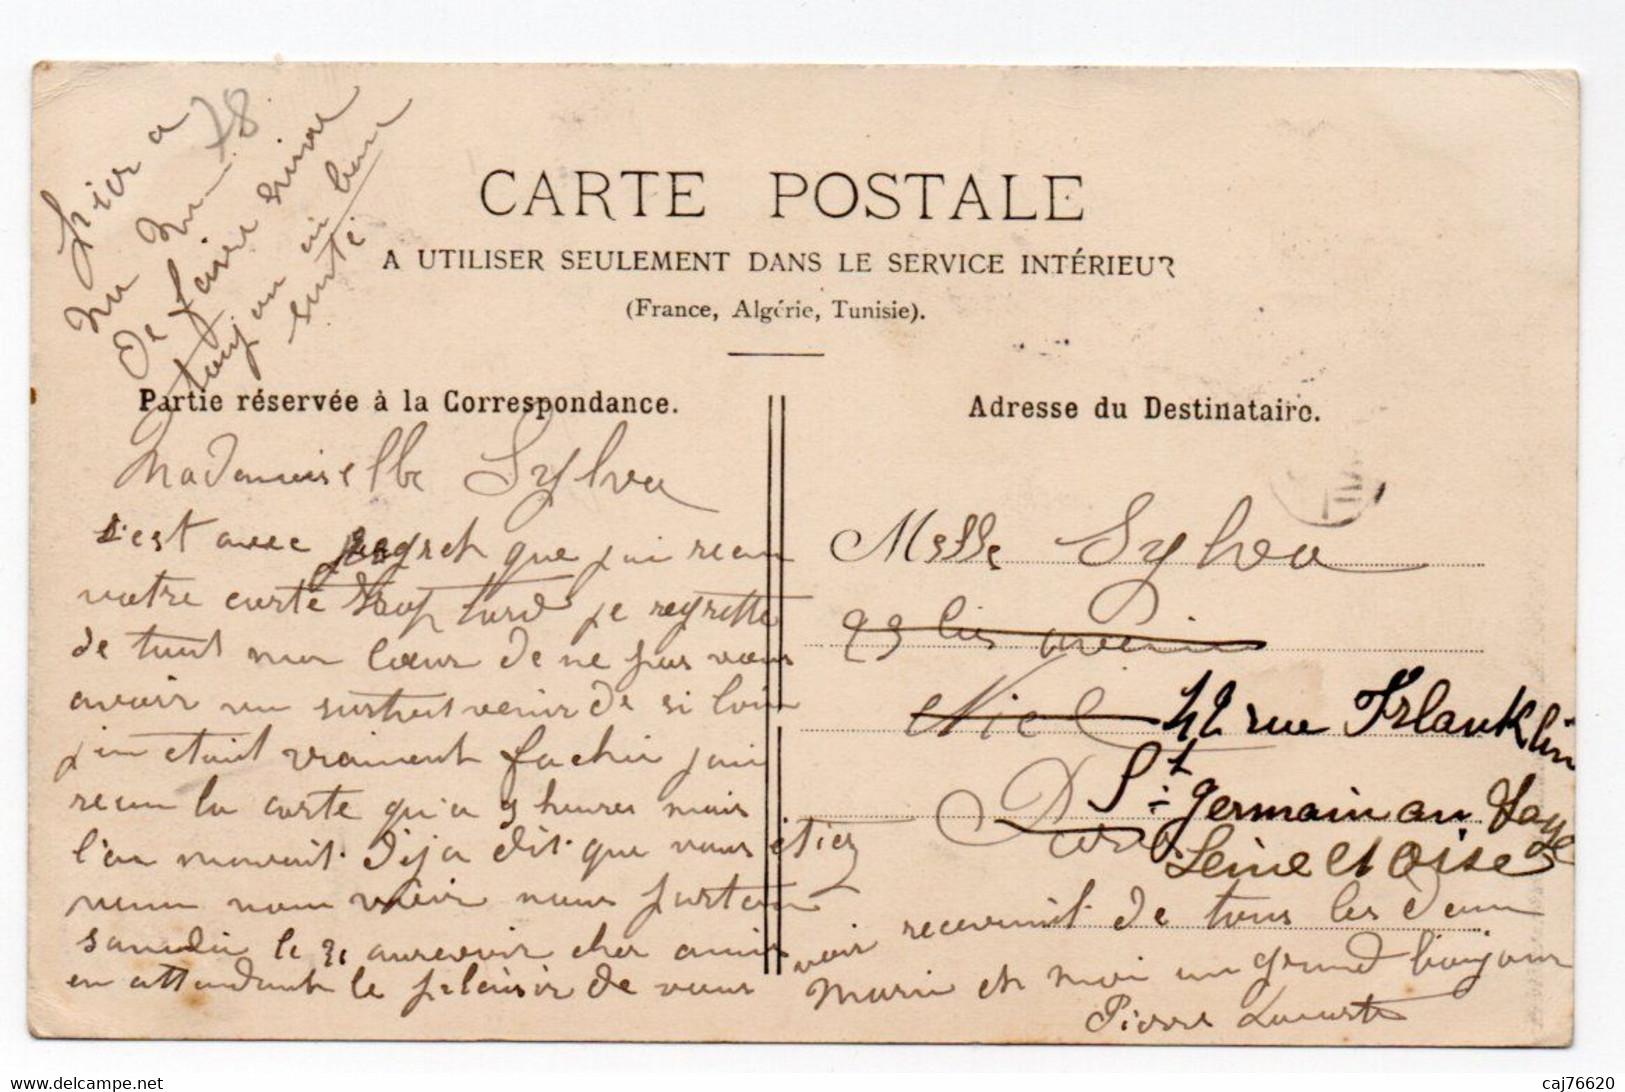 78
hier a
de faire suivre
toujours en bonne
santé
CARTE POSTALE
A UTILISER SEULEMENT DANS LE SERVICE INTÉRIEUR
(France, Algérie, Tunisie).
Partie réservée à la Correspondance.
Mademoiselle Sylva
c'est avec regret que j'ai recu
votre carte trop tard je regrette
de tout mon cœur de ne pas vous
avoir vu surtout venir de si loin
j'en etait vraiment fachir j'ai
recu la carte qu'a 9 heures mais
l'on deja dit que vous étiez
venu nous voir nous partons
samedi le 31 aurevoir cher amis
en attendant le plaisir de vous
voir recevent de tous les deux
Marie et moi un grand bonjour
Pierre
Adresse du Destinataire.
Melle Sylva
29 bis avenue
Niel 42 rue Franklin
Paris St germain au Laye
Seine et Oise
delcampe.net
caj76620